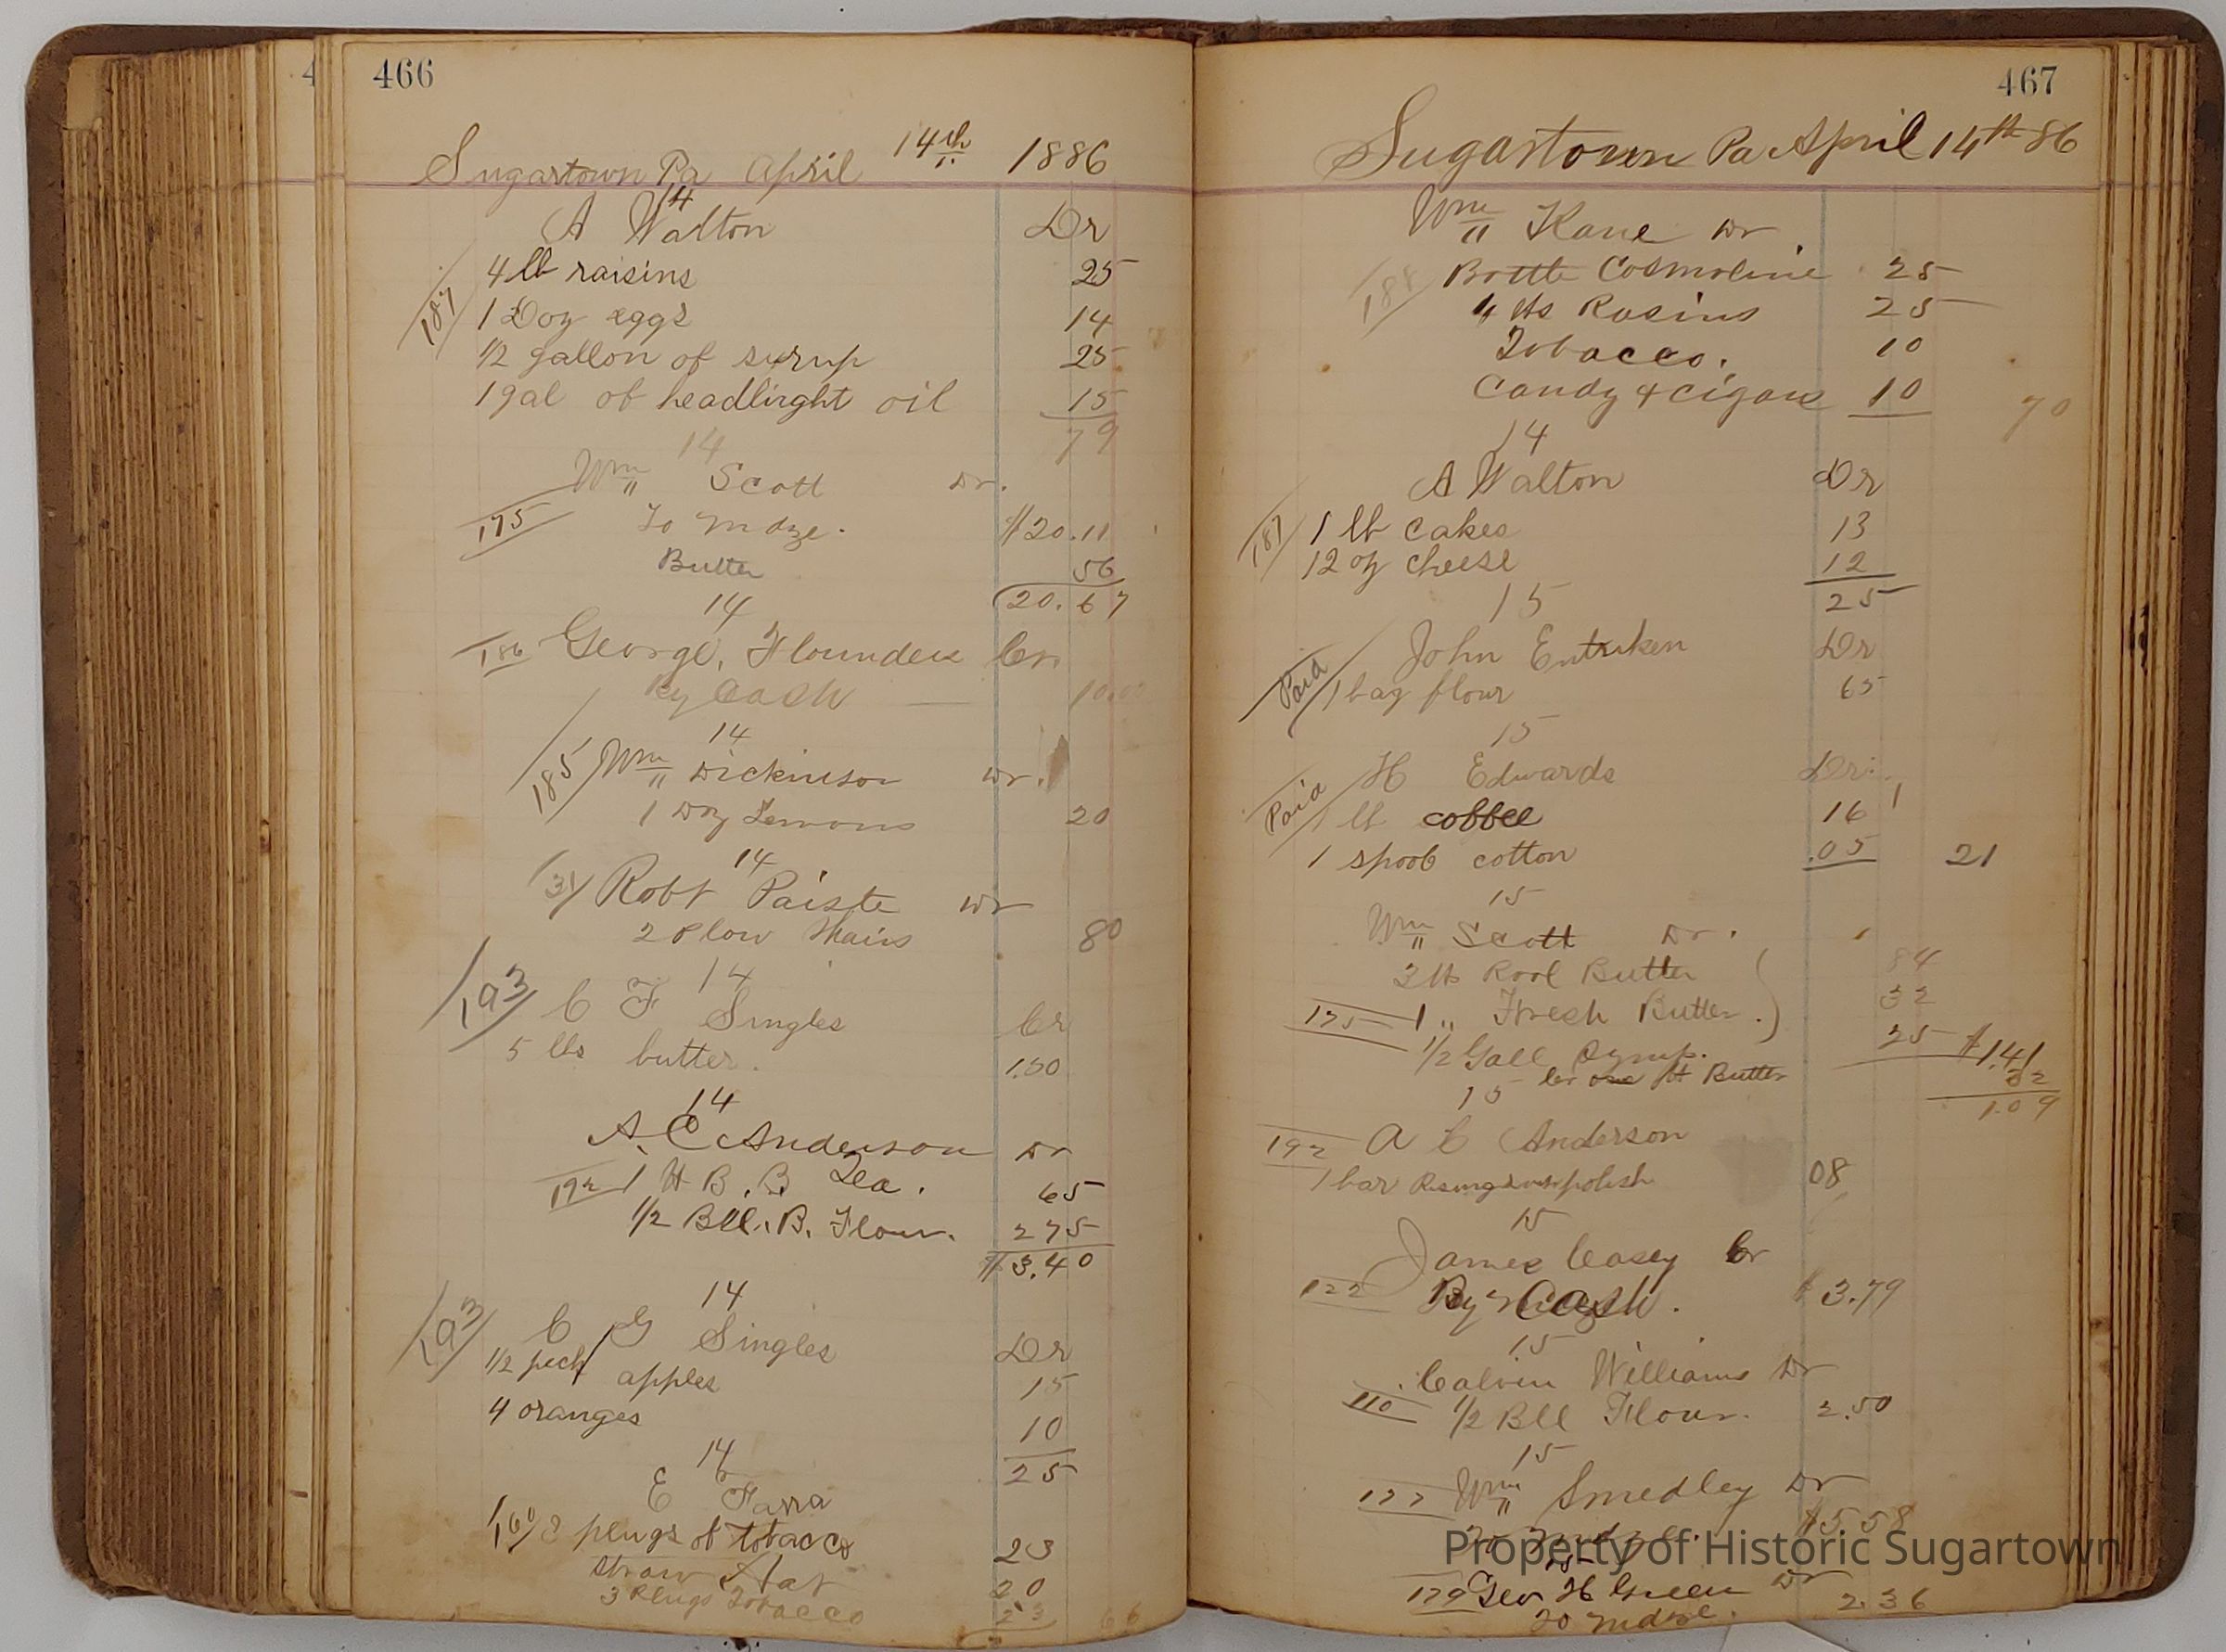 466
Sugartown Pa April 14th 1886
14
A Walton Dr
187
4 lb raisins 25
1 Doz eggs 14
1/2 gallon of syrup 25
1 gal of headlirght oil 15
79
14
Wm Scott Dr.
175 To Mdze. $20.11
Butter 56
20.67
14
186 George, Flounders Cr
By Cash 10.00
14
185 Wm Dickinson Dr.
1 Doz Lemons 20
14
31 Robt Paiste Dr
2 Plow Shairs 80
14
193 C F Singles Cr
5 lbs butter. 1.50
14
A. C Anderson Dr
192 1 lb B. B Tea. 65
1/2 Bll. B. Flour. 275
$3.40
14
193 C G Singles Dr
1/2 peck apples 15
4 oranges 10
25
14
E Farra
160 3 plugs of tobacco 23
Straw Hat 20
3 Plugs Tobacco 23 66
467
Sugartown Pa April 14th 86
Wm Kane Dr.
188 Bottle Cosmoline 25
4 lbs Rasins 25
Tobacco. 10
Candy & Cigars 10 70
14
A Walton Dr
187 1 lb cakes 13
12 oz cheese 12
25
15
John Entriken Dr
Paid 1 bag flour 65
15
H Edwards Dr.
Paid 1 lb coffee 16
1 spool cotton .05 21
15
Wm Scott Dr.
3 lb Rool Butter 84
175 1 " Fresh Butter. 32
1/2 Gall Syrup. 25 $1.41
Cr one lb Butter 32
1.09
15
192 A C Anderson
1 bar Rising sun polish 08
15
James Casey Cr
122 By Cash. $3.79
15
Calvin Williams Dr
110 1/2 Bll Flour. 2.50
15
177 Wm Smedley Dr
To Mdze. $5.58
15
179 Geo H Green Dr
To Mdze. 2.36
Property of Historic Sugartown